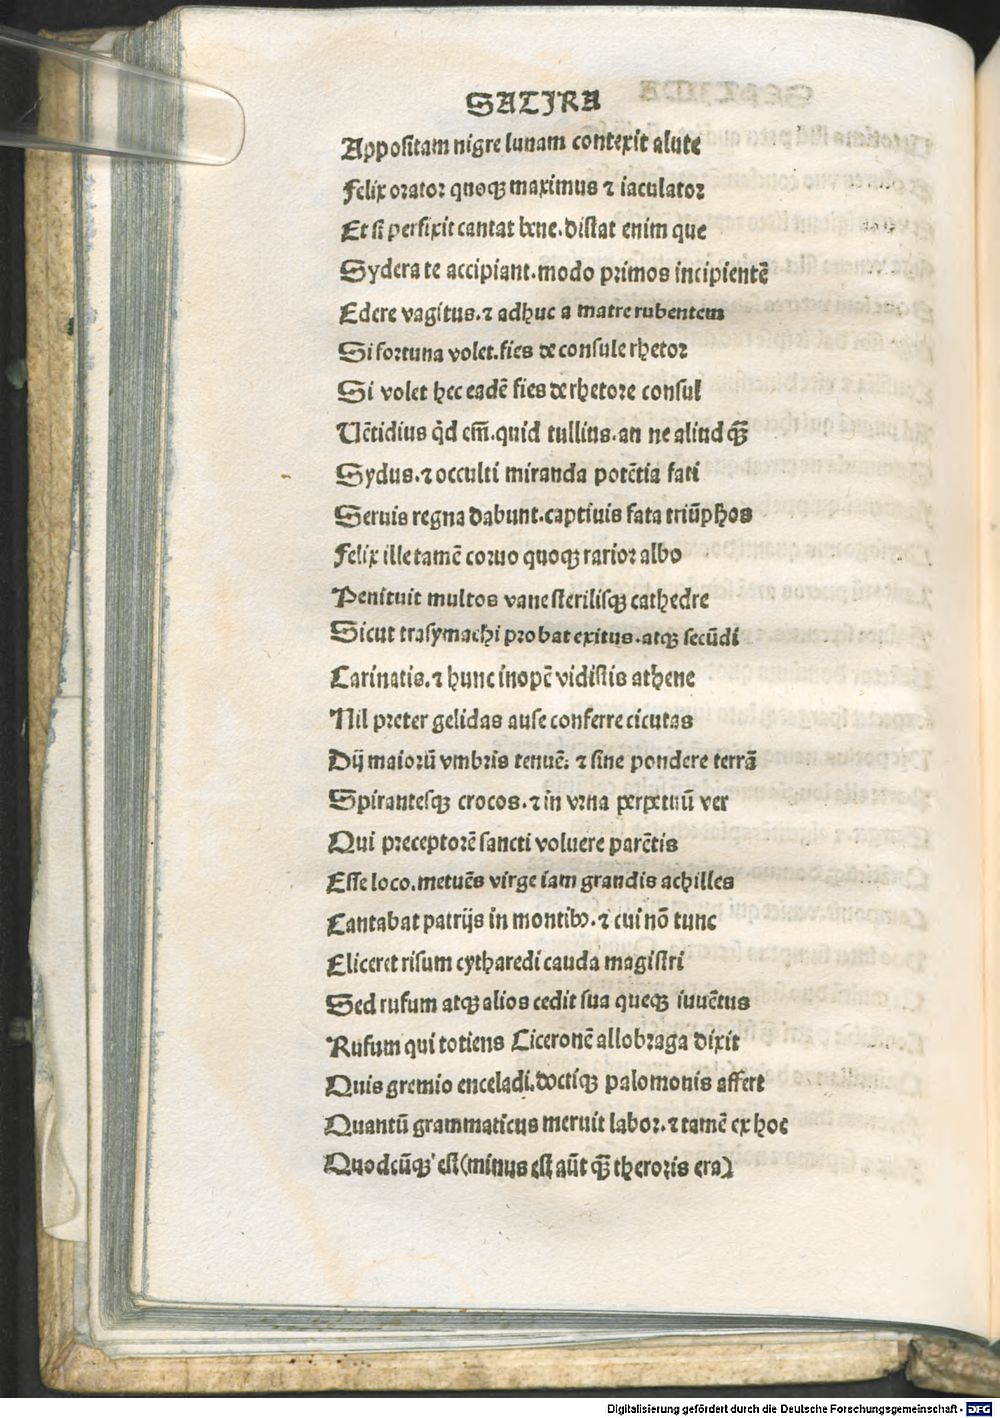 SATIRA
Appositam nigre lunam contexit alute
Felix orator quoqꝫ maximus ⁊ iaculator
Et si perfixit cantat bene. distat enim que
Sydera te accipiant. modo primos incipientē
Edere vagitus. ⁊ adhuc a matre rubentem
Si fortuna volet. fies de consule rhetor
Si volet hec eadē fies de rhetore consul
Uētidius qd em̄. quid tullius. an ne aliud qꝫ̄
Sydus. ⁊ occulti miranda potētia fati
Seruis regna dabunt. captiuis fata triūphos
Felix ille tamē coruo quoqꝫ rarior albo
Penituit multos vane sterilisqꝫ cathedre
Sicut trasymachi probat exitus. atqꝫ secūdi
Carinatis. ⁊ hunc inopē vidistis athene
Nil preter gelidas ause conferre cicutas
Dij maiorū vmbris tenuē: ⁊ sine pondere terrā
Spirantesqꝫ crocos. ⁊ in vrna perpetuū ver
Qui preceptorē sancti voluere parētis
Esse loco. metuēs virge iam grandis achilles
Cantabat patrijs in montibꝰ. ⁊ cui nō tunc
Eliceret risum cytharedi cauda magistri
Sed rufum atqꝫ alios cedit sua queqꝫ iuuētus
Rufum qui totiens Ciceronē allobraga dixit
Quis gremio enceladi. doctiqꝫ palomonis affert
Quantū grammaticus meruit labor. ⁊ tamē ex hoc
Quodcūqꝫ est (minus est aūt qꝫ̄ theroris era)
Digitalisierung gefördert durch die Deutsche Forschungsgemeinschaft - DFG